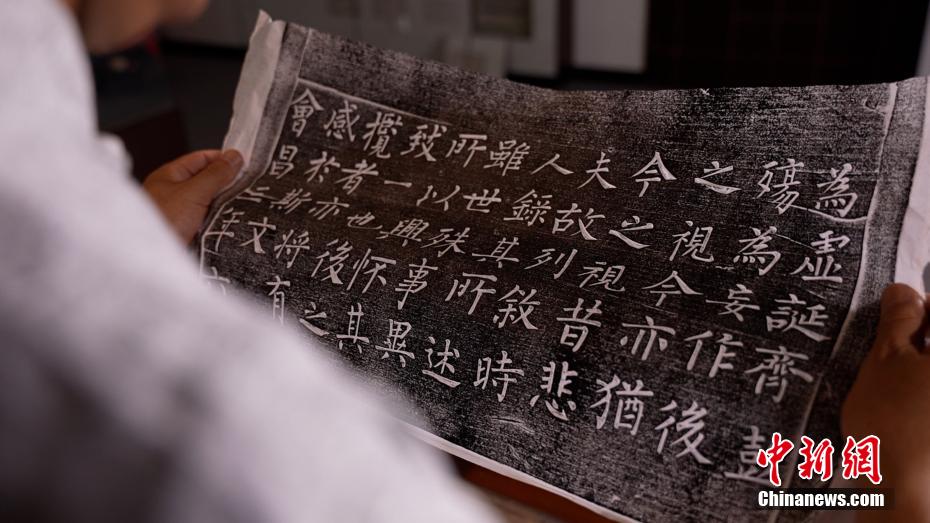 為虛誕齊彭
殤為妄作後
之視今亦猶
今之視昔悲
夫故列敘時
人錄其所述
雖世殊事異
所以興懷其
致一也後之
攬者亦將有
感扵斯文
會昌二年
中新网
Chinanews.com